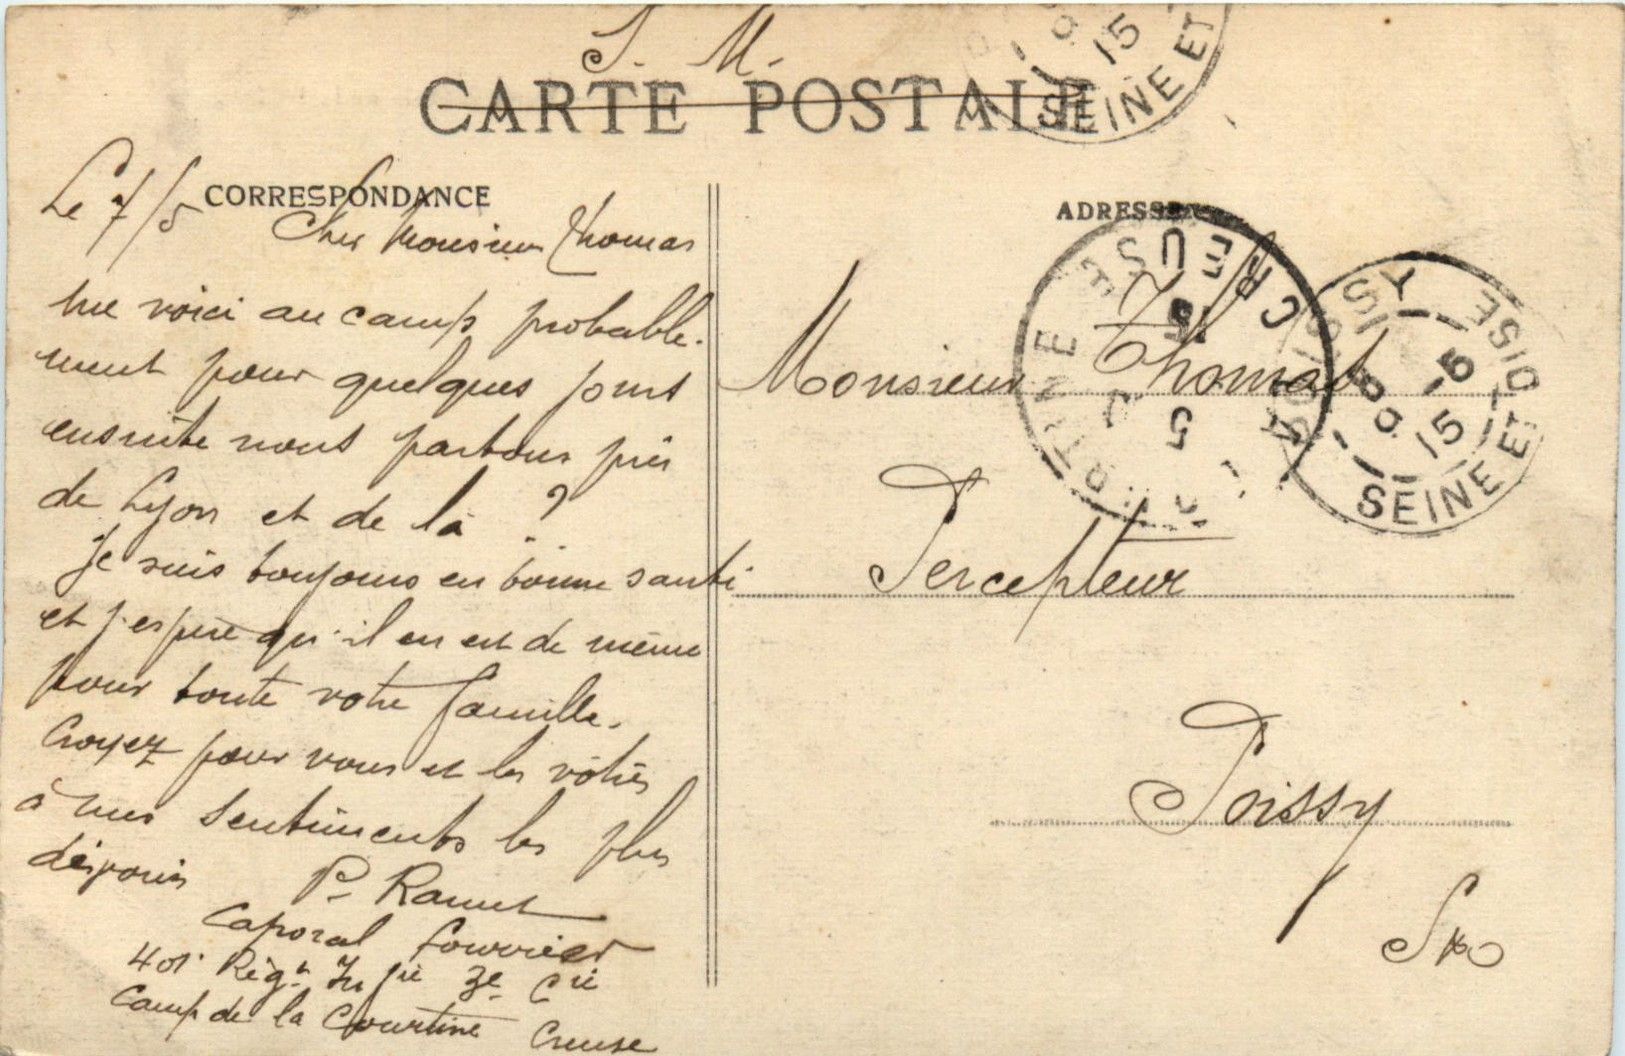 S. M.
CARTE POSTALE
CORRESPONDANCE
Le 7/5
Cher Monsieur Thomas
me voici au camp probable-
ment pour quelques jours
ensuite nous partons près
de Lyon et de là ?
Je suis toujours en bonne santé
et j'espère qu'il en est de même
pour toute votre famille.
Croyez pour vous et les vôtres
à mes sentiments les plus
dévoués
P. Ramet
Caporal fourrier
401e Régt Infie 3e Cie
Camp de la Courtine Creuse
ADRESSE
Monsieur Thomas
Percepteur
Poissy
S&O
LA COURTINE CREUSE
7 5 15
POISSY SEINE ET OISE
9-5 15
SEINE ET
9 15